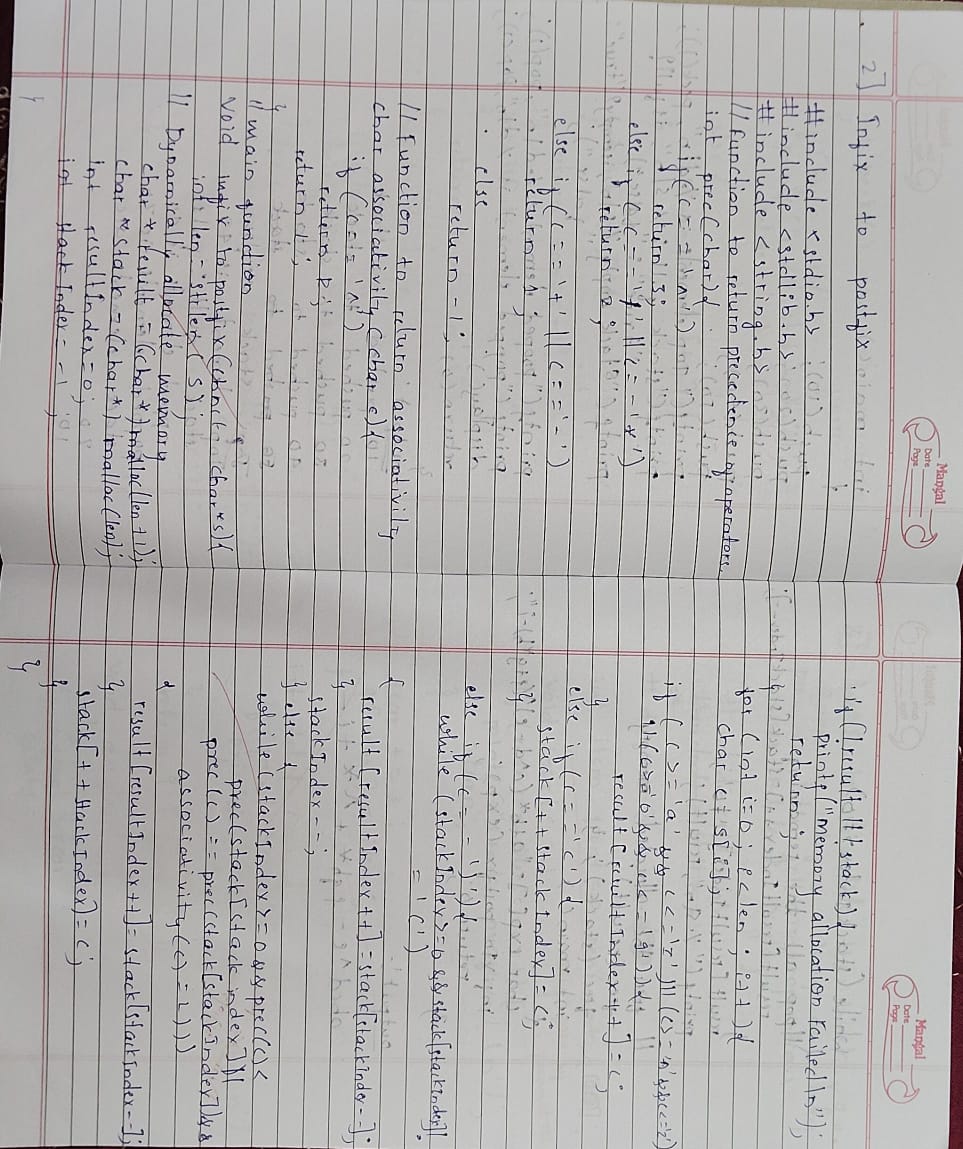 Mangal
Date
Page
2] Infix to postfix
#include <stdio.h>
#include <stdlib.h>
#include <string.h>
// function to return precedence of operators
int prec(char){
if(c == '^')
return 3;
else if (c == '/' || c == '*')
return 2;
else if (c == '+' || c == '-')
return 1;
else
return -1;
// Function to return associativity
char associativity (char c){
if (c == '^')
return R;
return L;
}
// main function
void infix to postfix (const char*s){
int len = strlen(s);
// Dynamically allocate memory
char * result = (char*) malloc(len +1);
char * stack = (char*) malloc(len);
int resultIndex=0;
int stack Index= -1;
}
Mangal
Date
Page
if (!result || !stack) {
printf("memory allocation Failed \n");
return;
}
for (int i=0; i<len; i++){
char c = s[i];
if ((c>='a' && c<='z') || (c>='A' && c<='Z')
|| (c>='0' && c<='9')) {
result [resultIndex++]=c;
}
else if (c=='(') {
stack[++stack Index]=c;
}
else if (c == ')') {
while (stackIndex>=0 && stack[stackIndex]!
= '(')
{
result [resultIndex++]=stack[stackIndex--];
}
stackIndex--;
} else {
while (stackIndex>=0 && prec(c)<
prec(stack[stack index]) ||
prec(c) == prec(stack[stackIndex]) &&
associativity (c) = L)))
{
result [resultIndex++]= stack[stackIndex--];
}
stack[++stackIndex]=c;
}
}